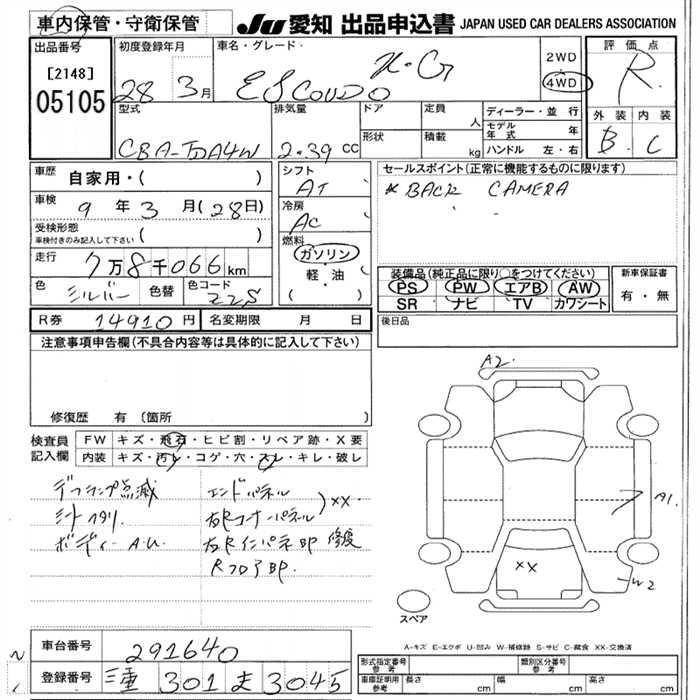 車内保管・守衛保管
JU 愛知 出品申込書 JAPAN USED CAR DEALERS ASSOCIATION
出品番号
[2148]
05105
初度登録年月
28 3月
車名・グレード
ESCOUDO X.G
2WD
4WD
評価点
R
外装 内装
B C
型式
CBA-TDA4W
排気量
2.39 cc
ドア
形状
定員
人
積載
kg
ディーラー・並行
モデル年式 年
ハンドル 左・右
車歴 自家用・( )
車検 9年3月(28日)
受検形態
車検付きのみ記入して下さい ( )
走行 7万8千066km
色 シルバー 色替 色コード Z2S
シフト
AT
冷房
AC
燃料
ガソリン
軽・油
( )
セールスポイント(正常に機能するものに限ります)
* BACK CAMERA
装備品(純正品に限り○をつけてください)
PS PW エアB AW
SR ナビ TV カワシート
新車保証書
有・無
R券 14910円 名変期限 月 日
後日品
注意事項申告欄(不具合内容等は具体的に記入して下さい)
修復歴 有 (箇所
検査員
記入欄
FW キズ・飛石・ヒビ割・リペア跡・X要
内装 キズ・汚レ・コゲ・穴・スレ・キレ・破レ
デフランプ点滅
シートヘタリ
ボディー A.U.
エンドパネル
右Rコーナーパネル) XX
右Rインパネ部 修復
Rフロア部.
A2.
A1.
W2
XX
スペア
A-キズ E-エクボ U-凹み W-補修跡 S-サビ C-腐食 XX-交換済
車台番号 291640
登録番号 三重 301 ま 3045
形式指定番号
参考
類別区分番号
参考
車庫証明用
参考
長さ cm 幅 cm 高さ cm